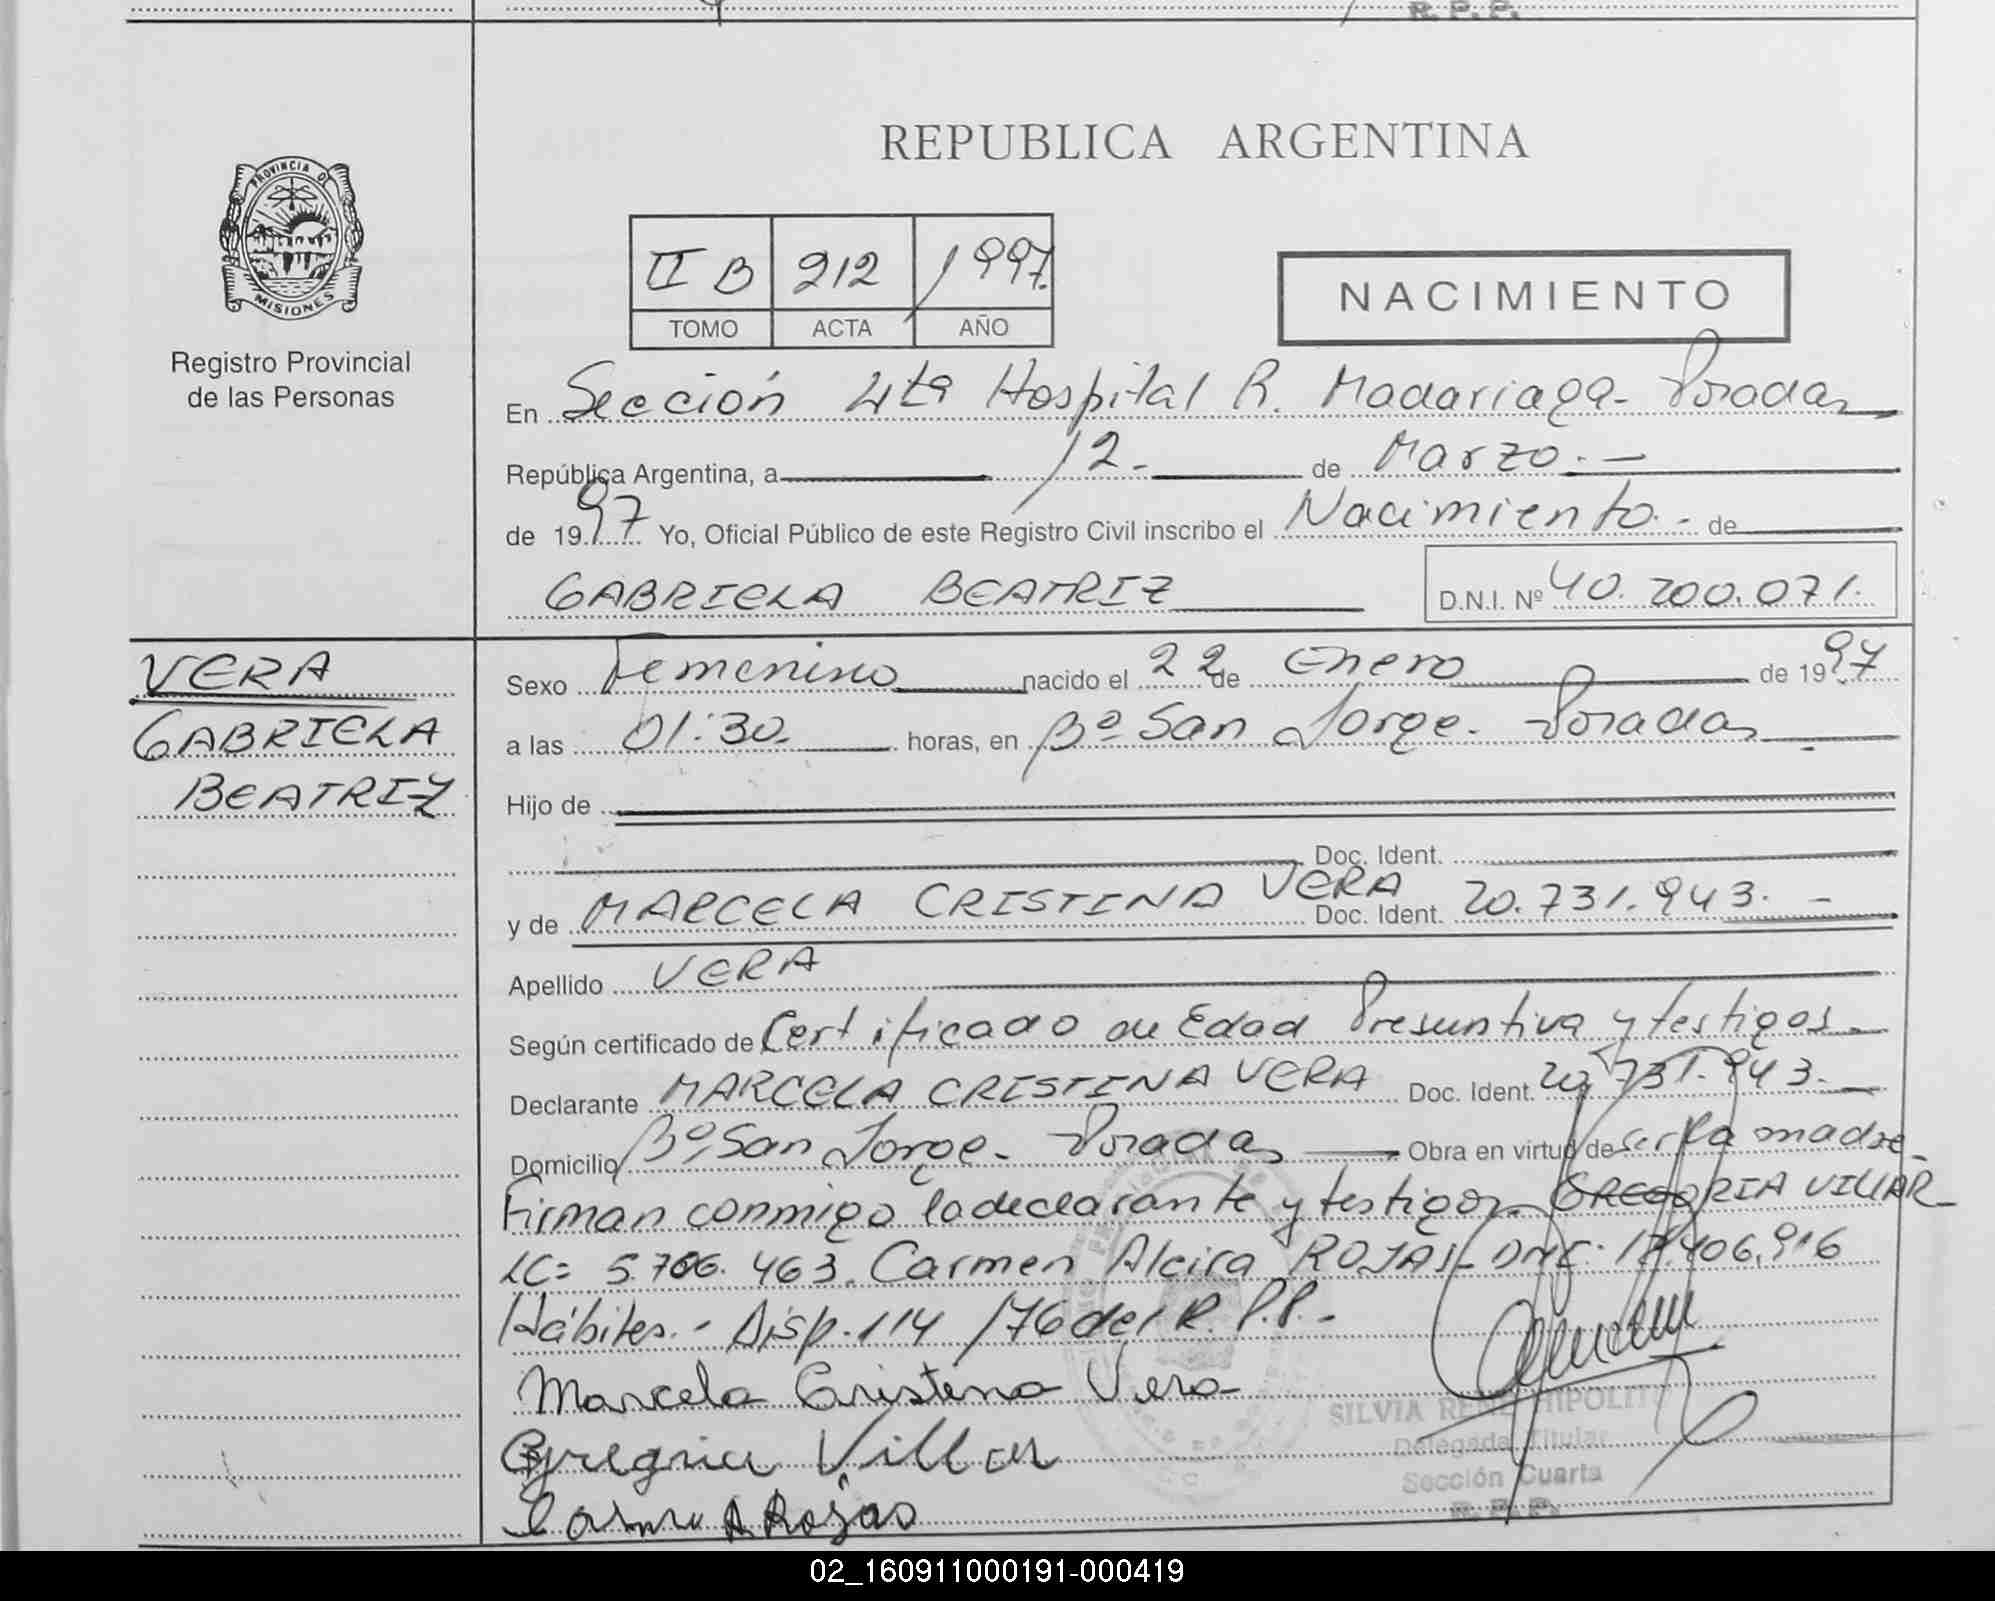 R. P. P.
REPUBLICA ARGENTINA
PROVINCIA DE
MISIONES
Registro Provincial
de las Personas
II B 212 1997.
TOMO ACTA AÑO
NACIMIENTO
En Sección 4ta Hospital R. Madariaga - Posadas
República Argentina, a 12 - de Marzo. -
de 1997 Yo, Oficial Público de este Registro Civil inscribo el Nacimiento. - de
GABRIELA BEATRIZ D.N.I. Nº 40.200.071.
VERA
GABRIELA
BEATRIZ
Sexo Femenino nacido el 22 de Enero de 1997
a las 01:30. horas, en Bº San Jorge - Posadas
Hijo de
Doc. Ident.
y de MARCELA CRISTINA VERA Doc. Ident. 20.731.943. -
Apellido VERA
Según certificado de Certificado de Edad Presuntiva y testigos -
Declarante MARCELA CRISTINA VERA Doc. Ident. 20.731.943. -
Domicilio Bº San Jorge - Posadas Obra en virtud de ser la madre -
Firman conmigo la declarante y testigos. GREGORIA VILLAR -
LC= 5.706.463. Carmen Alcira ROJAS - DNI: 17.406.916
Hábiles. - Disp. 114 /76 del R. P.P. -
Marcela Cristina Vera
Gregoria Villar
Carmen A Rojas
SILVIA RENE HIPOLITO
Delegada Titular
Sección Cuarta
R. P. P.
02_160911000191-000419